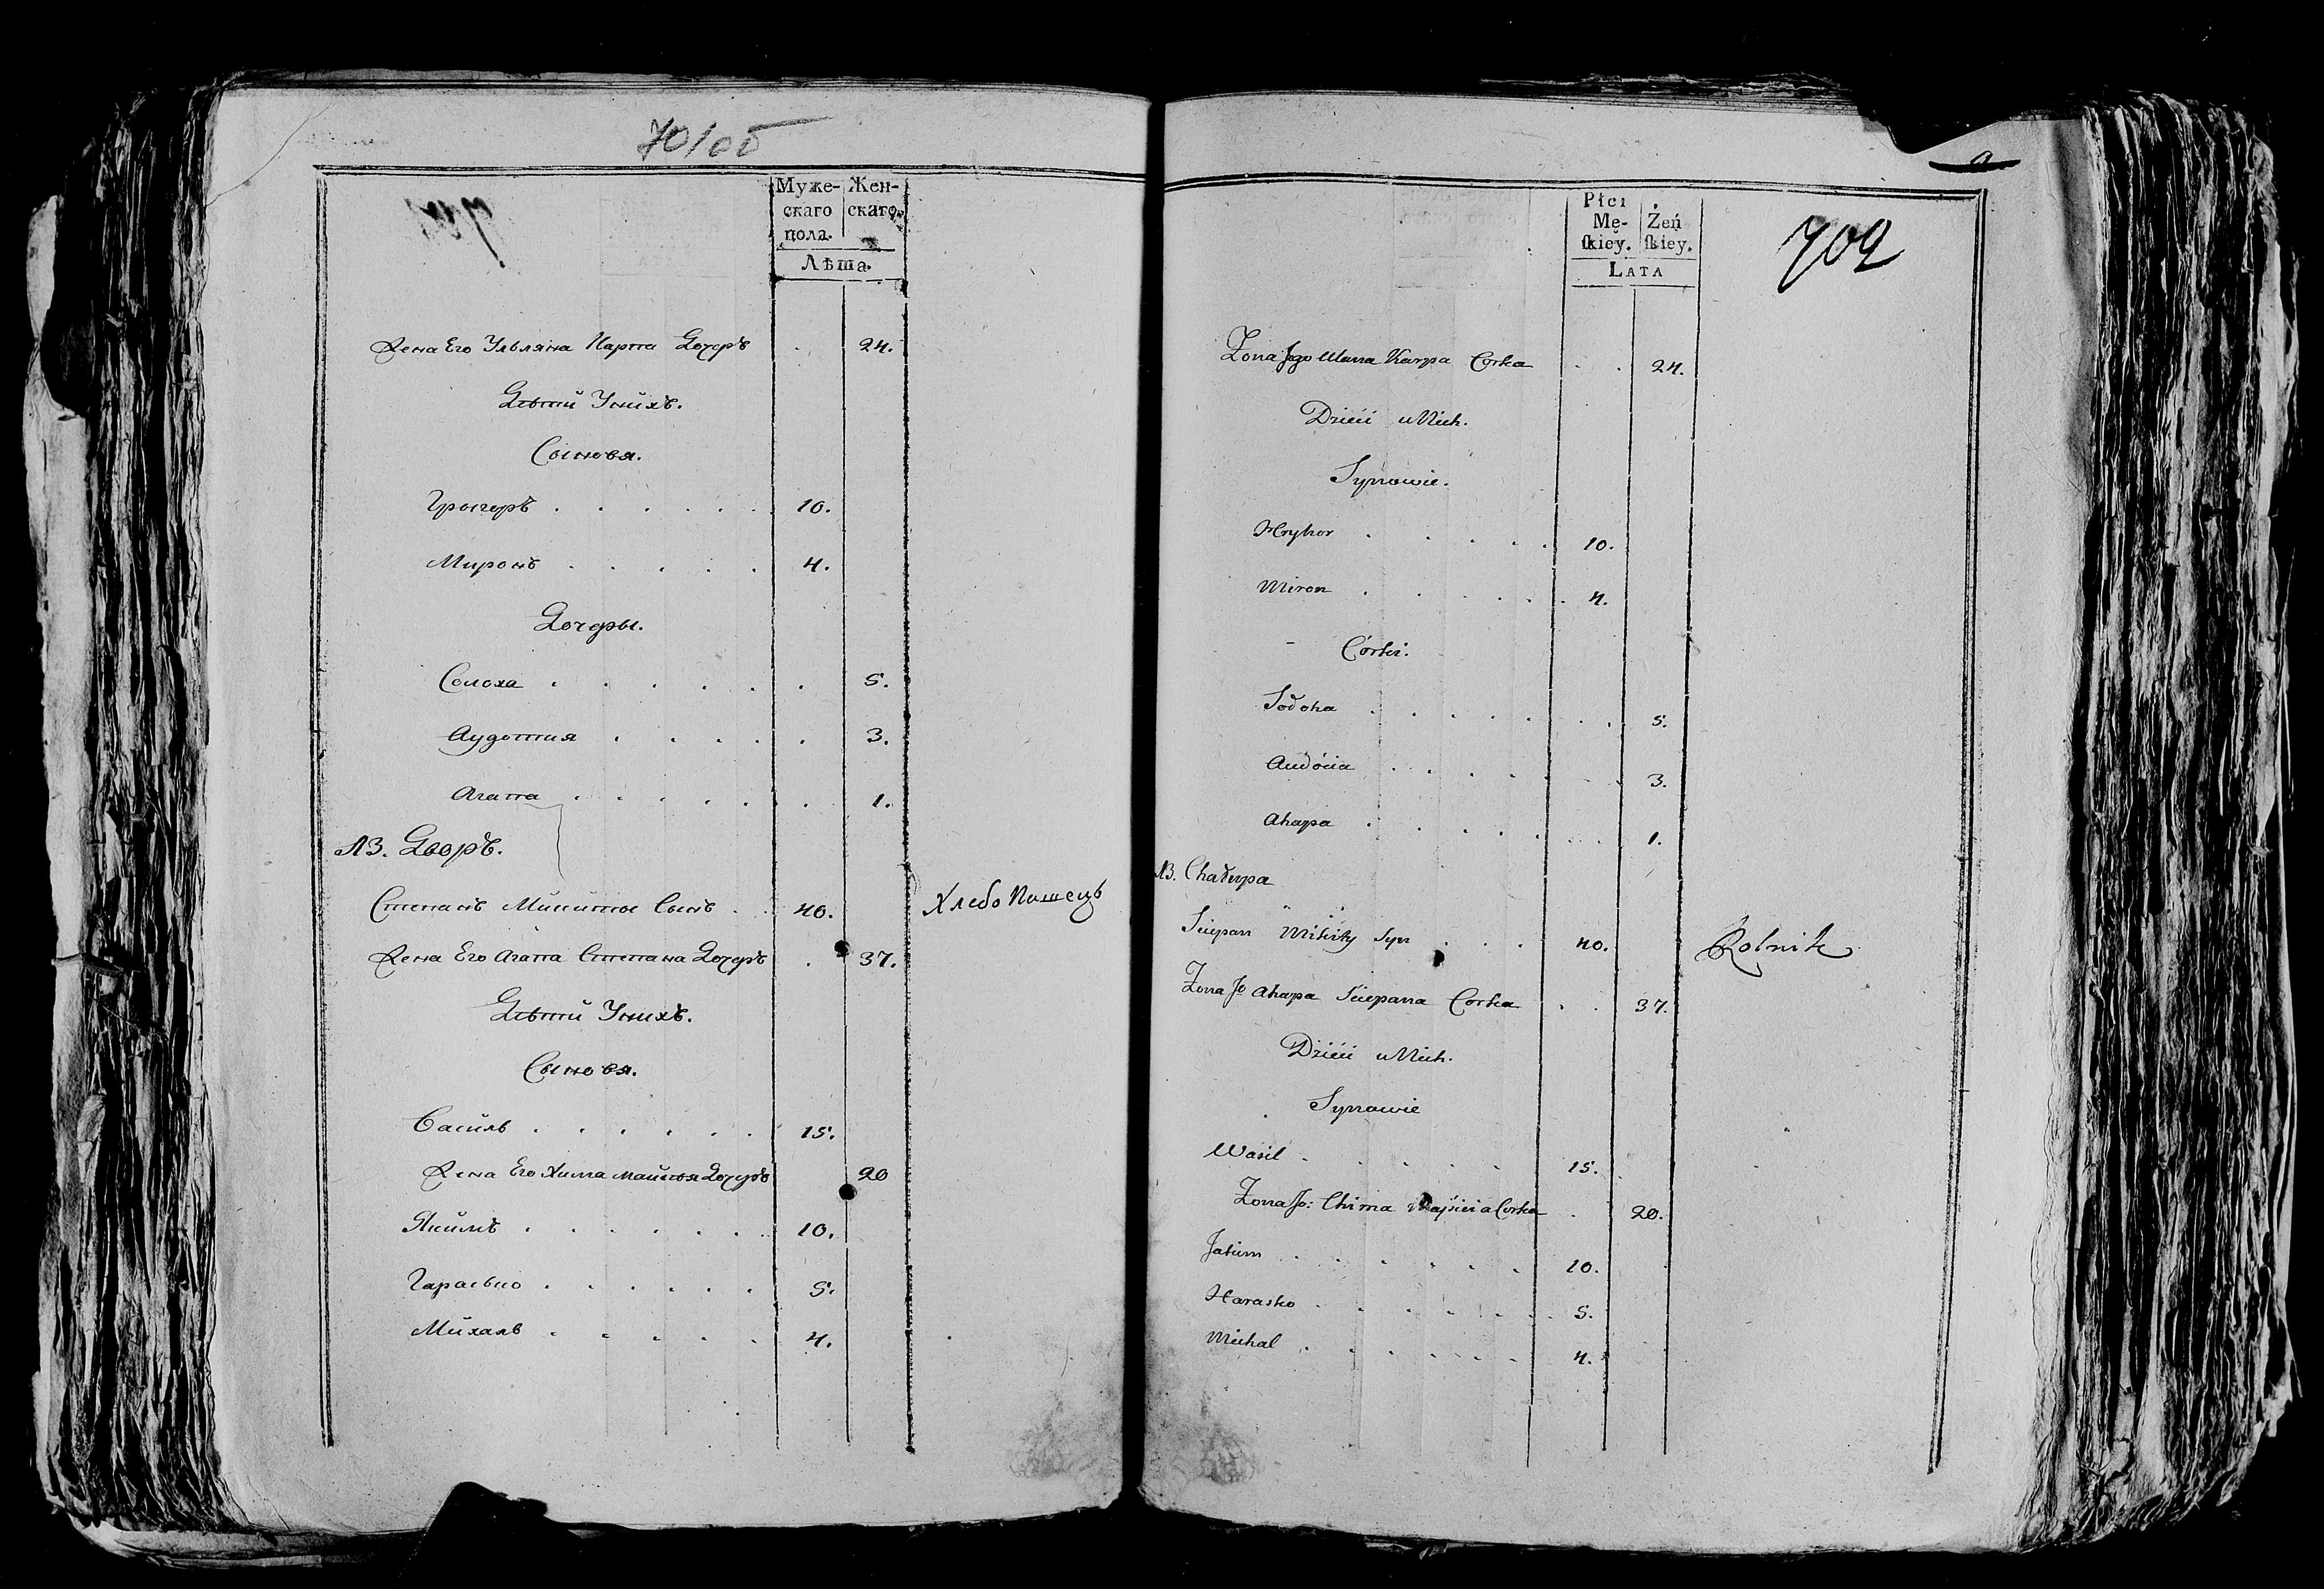 701 об
Муже- Жен-
скаго скаго
пола.
Лѣта.
Жена Его Ульляна Карпа Дочерь 24.
Дѣтй Унйхъ.
Сыновя.
Грыгоръ 10.
Миронъ 4.
Дочеры.
Солоха 5.
Аудотия 3.
Агапа 1.
13. Дворъ.
Степанъ Микиты Сынъ 40. Хлебо Пашецъ
Жена Его Агапа Степана Дочерь 37.
Дѣтй Унихъ.
Сыновя.
Васйль 15.
Жена Его Хима Дочерь 20
Якймъ 10.
Гарасько 5.
Мйхаль 4.
702
Płci
Mę- Żeń
ſkiey. ſkiey.
LATA
Zona Jego Ulana Karpa Corka 24.
Dzieći u Nich.
Synowie.
Hryhor 10.
Miron 4.
Córki.
Sołoha 5.
Audócia 3.
Ahapa 1.
13. Chałupa
Sciepan Mikity Syn 40. Rolnik
Zona Jo Ahapa Sciepana Corka 37.
Dzieći u Nich.
Synowie
Wasil 15.
Zona Jo: Chima Corka 20.
Jakim 10.
Harasko 5.
Michal 4.